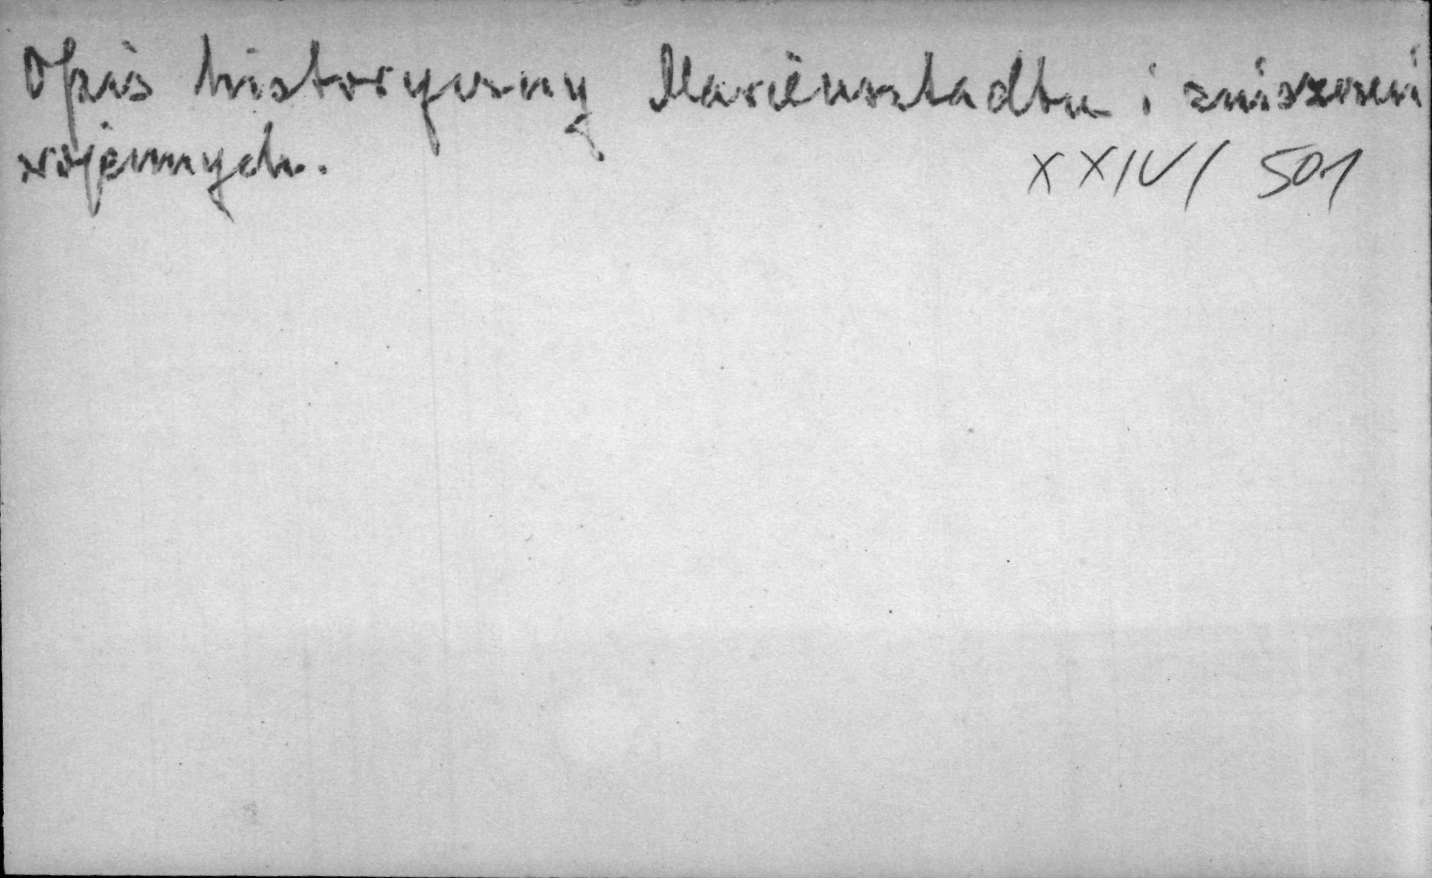 Opis historyczny Marienstadtu i zniszczeń
wojennych. XXIV/ 501